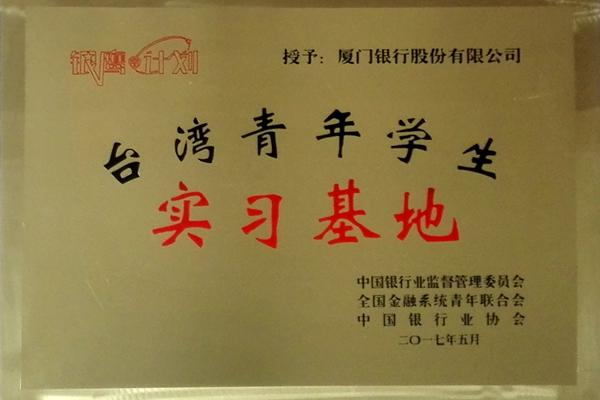 银鹰计划
授予：厦门银行股份有限公司
台湾青年学生
实习基地
中国银行业监督管理委员会
全国金融系统青年联合会
中国银行业协会
二〇一七年五月